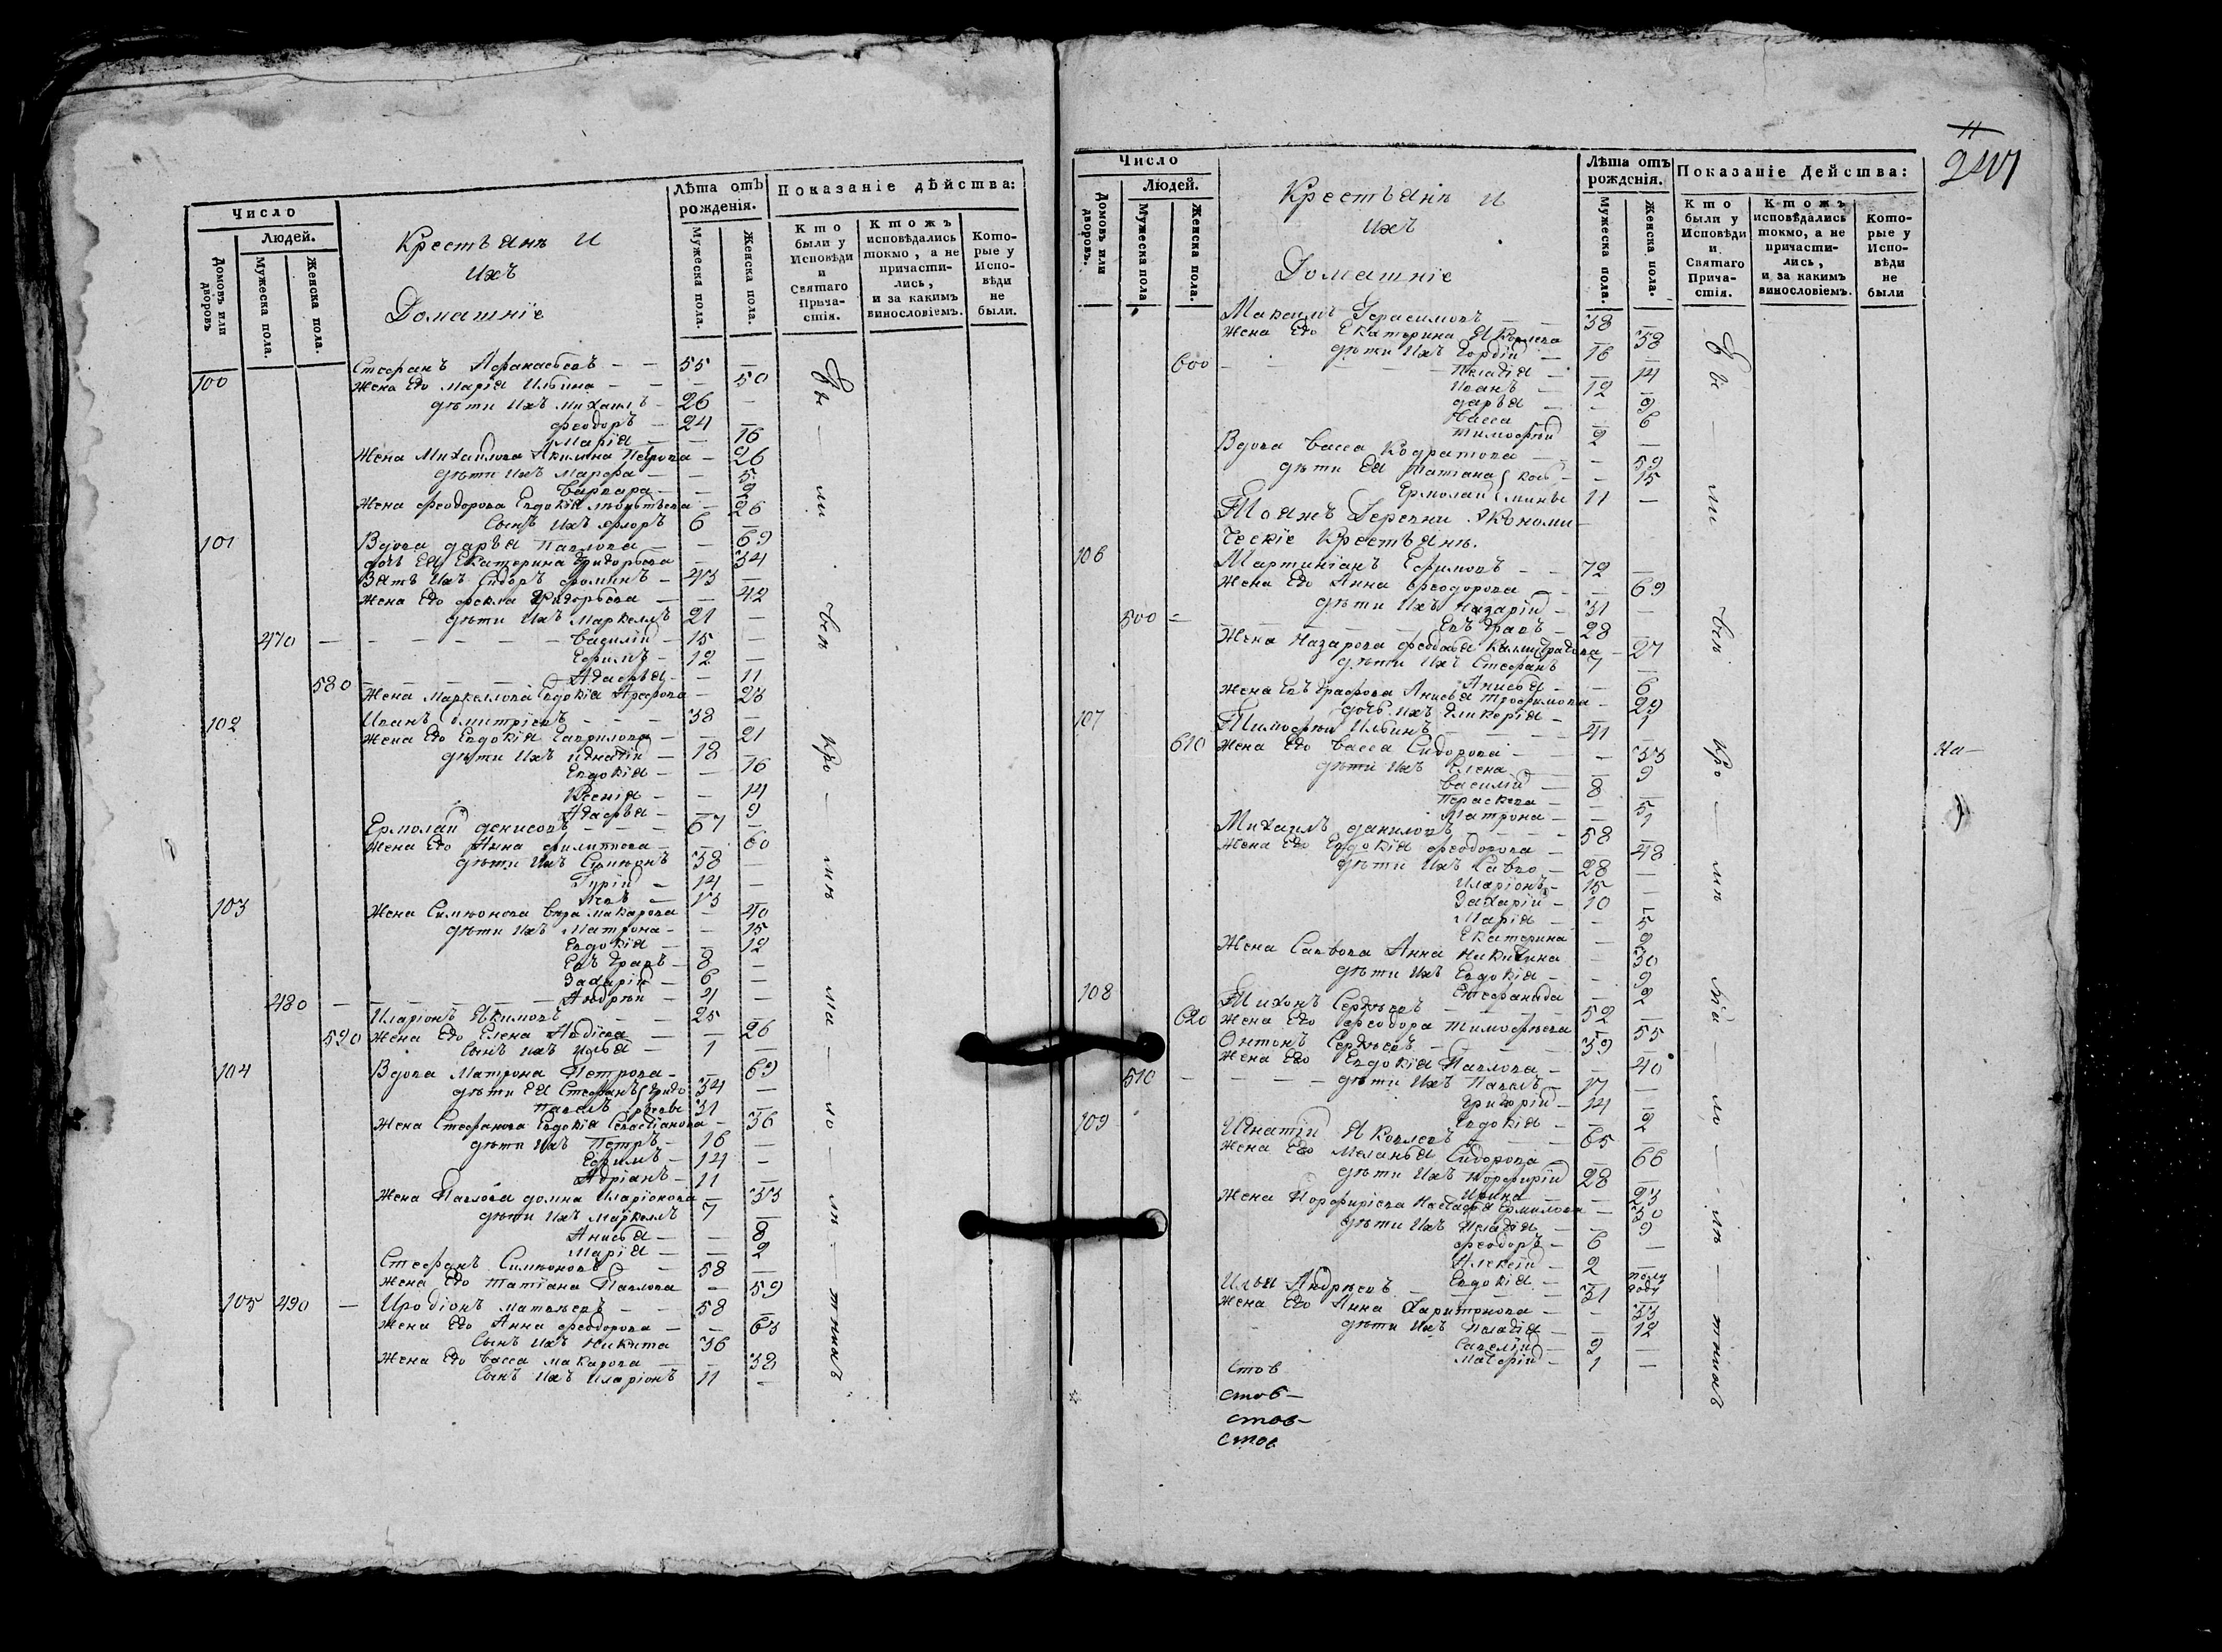 Число
Людей.
Домовъ или дворовъ
Мужеска пола.
Женска пола.
Крестьянѣ и
ихъ
Домашніе
Лѣта отъ рожденія.
Мужеска пола.
Женска пола.
Показаніе дѣйства:
Кто были у Исповѣди и Святаго Прича-стія.
Ктожъ исповѣдались токмо, а не причасти-лись, и за какимъ винословіемъ.
Кото-рые у Испо-вѣди не были.
Стефанъ Афанасьевъ — — 55 —
100 Жена Его Марія Ильина — — — 50
дѣти ихъ Михаилъ — 26 —
Феодоръ — 24 —
Марія — — 16
Жена Михаилова Акилина Петрова — 26
дѣти ихъ Марфа — — 5
Варвара — — 2
Жена Феодорова Евдокія — 26
Сынъ ихъ Флоръ 6 —
101 Вдова Дарья Павлова — — 69
дочь Ея Екатерина Григорьева — 34
Зять ихъ Сидоръ Фоминъ — 43 —
Жена Его Фекла Григорьева — — 42
дѣти ихъ Маркеллъ 21 —
470 — Василій — 15 —
Ефимъ — 12 —
580 — Агафья — — 11
Жена Маркеллова Евдокія Арефова — 23
102 Иванъ Дмитріевъ — — — 38 —
Жена Его Евдокія Гаврилова — — 21
дѣти ихъ Игнатій — 18 —
Евдокія — — 16
Ксенія — — 14
Агафья — — 9
Ермолай Денисовъ — — — 67 —
Жена Его Анна Филиппова — — 60
дѣти ихъ Симеонъ 38 —
Гурій — 14 —
Левъ — 13 —
103 Жена Симеонова Вера Макарова — 40
дѣти ихъ Матрона — — 15
Евдокія — — 12
Евъграфъ — 8 —
Захарій — 6 —
480 — Андрей — 4 —
Иларіонъ Якимовъ — — 25 —
590 Жена Его Елена — — 26
Сынъ ихъ Илья — 1 —
104 Вдова Матрона Петрова — — 69
дѣти Ея Стефанъ Григо 34 —
Павелъ рьевы 31 —
Жена Стефанова Евдокія Севастіанова — 36
дѣти ихъ Петръ — 16 —
Ефимъ — 14 —
Адріанъ — 11 —
Жена Павлова Домна Иларіонова — 33
дѣти ихъ Маркеллъ 7 —
Анисья — — 8
Марія — — 2
Стефанъ Симеоновъ — 58 —
Жена Его Татіана Павлова — 59
105 490 — Иродіонъ Матвѣевъ — — 58 —
Жена Его Анна Феодорова — — 63
Сынъ ихъ Никита 36 —
Жена Его Васса Макарова — — 32
Сынъ ихъ Иларіонъ 11 —
11
Число
Людей.
Домовъ или дворовъ.
Мужеска пола
Женска пола.
Крестьянѣ и
ихъ
Домашніе
Лѣта отъ рожденія.
Мужеска пола.
Женска пола.
Показаніе Действа:
Кто были у Исповѣди и Святаго Прича-стія.
Ктожъ исповѣдались токмо, а не причасти-лись, и за какимъ винословіемъ.
Кото-рые у Испо-вѣди не были
Максимъ Герасимовъ — — 38 —
Жена Его Екатерина Яковлева — 38
дѣти ихъ Гордій — 16 —
600 — Пелагія — — 14
Иванъ — 12 —
Дарья — — 9
Васса — 6
Тимофѣй 2 —
Вдова Васса Кодратова — — 59
дѣти Ея Татіана Козь — — 15
Ермолай мины 11 —
Тояжъ Деревни Экономи-
ческіе Крестьянѣ.
106 Мартиніанъ Ефимовъ — — 72 —
Жена Его Анна Феодорова — — 69
дѣти ихъ Назарій — 31 —
500 — Евъграфъ — 28 —
Жена Назарова Феодосья — 27
дѣти ихъ Стефанъ 7 —
Анисья — — 6
Жена Евъграфова Анисья Трофимова — 29
дочь ихъ Гликерія — 1
107 Тимофѣй Ильинъ — — 41 —
610 Жена Его Васса Сидорова — — 33
дѣти ихъ Елена — — 9
Василій — 8 —
Параскева — — 5
Матрона — — 1
Михаилъ Даниловъ — — 58 —
Жена Его Евдокія Феодорова — — 48
дѣти ихъ Савво — 28 —
Иларіонъ — 15 —
Захарій — 10 —
Марія — — 5
Екатерина — 2
Жена Саввова Анна Никитина — 30
дѣти ихъ Евдокія — — 9
Стефанида — 2
108 Тихонъ Сергѣевъ — — 52 —
620 Жена Его Феодора Тимофѣева — 55
Онтонъ Сергѣевъ — — 39 —
Жена Его Евдокія Павлова — — 40
510 — дѣти ихъ Павелъ — 17 —
Григорій — 14 —
Евдокія — — 2
109 Игнатій Яковлевъ — — 65 —
Жена Его Меланья Сидорова — — 66
дѣти ихъ Порфирій 28 —
Ирина — — 23
Жена Порфиріева Настасья Ермилова — 30
дѣти ихъ Пелагія — — 9
Феодоръ — 6 —
Алексій — 2 —
Евдокія — полу году
Илья Андреевъ — — 31 —
Жена Его Анна Харитонова — — 33
дѣти ихъ Пелагія — — 12
Савелій — 2 —
1 —
стов
стов-
стов-
стов
На-